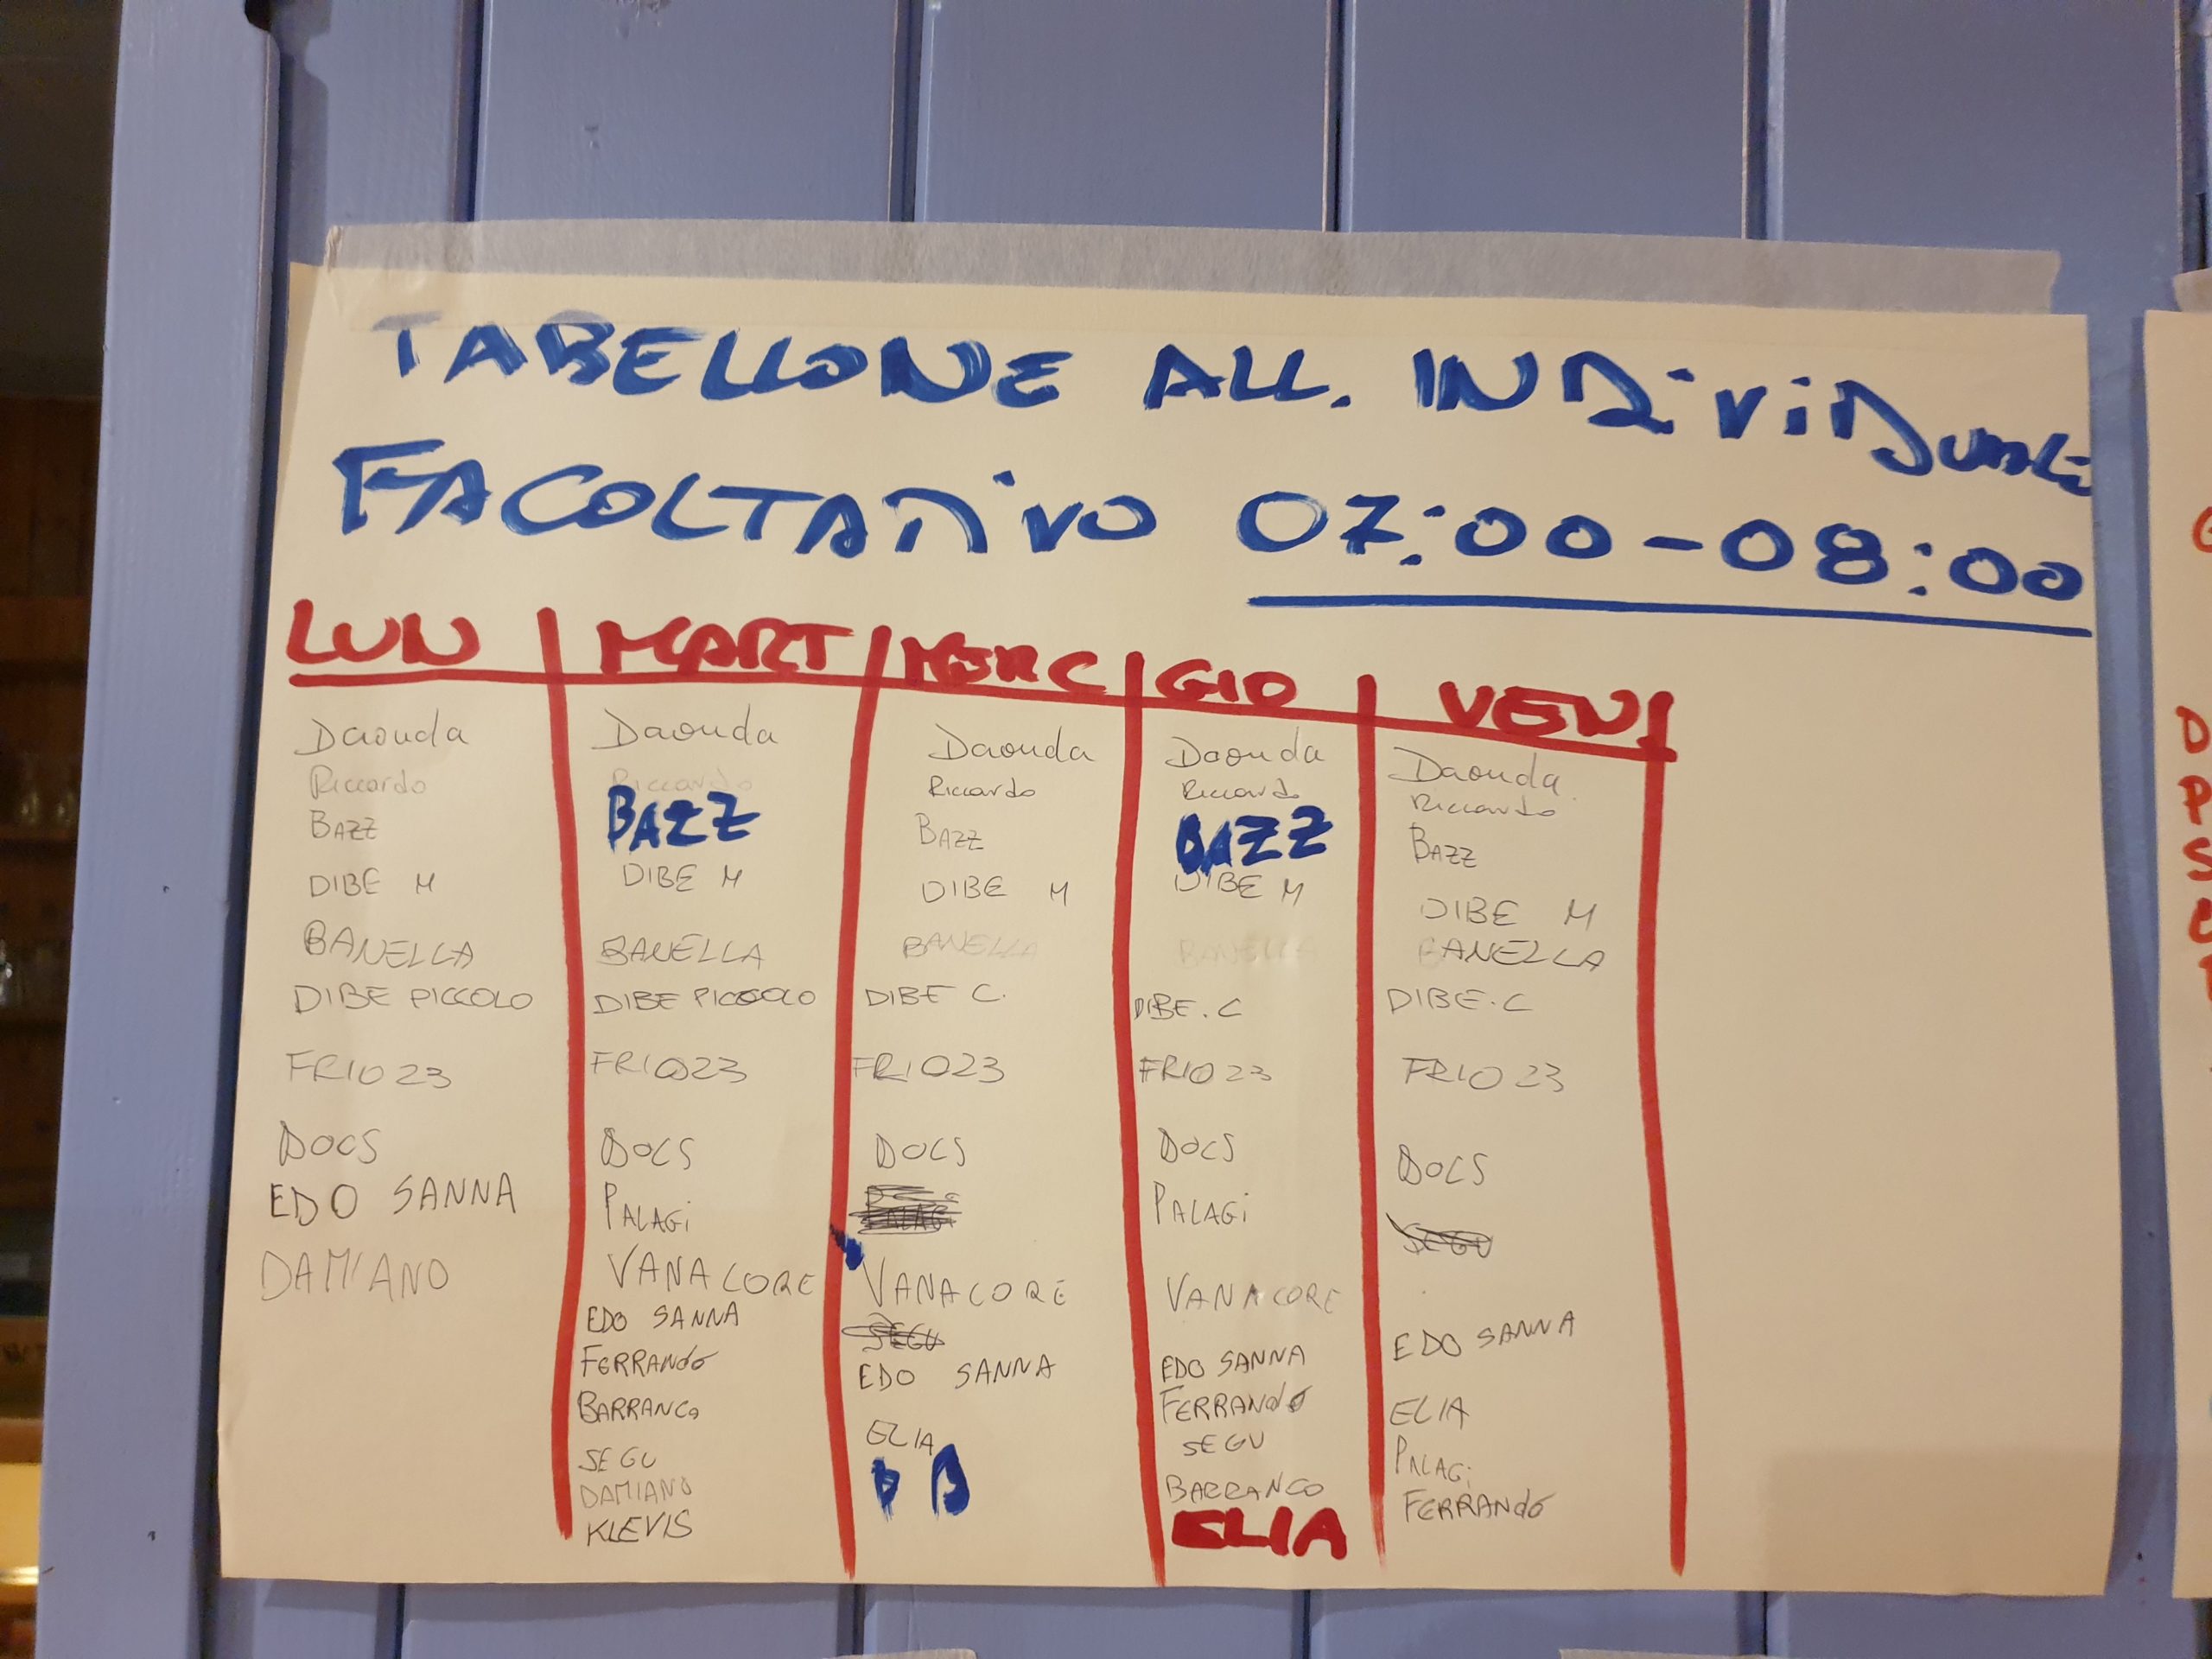 TABELLONE ALL. INDIVIDUALE
FACOLTATIVO 07:00-08:00
LUN
Daouda
Riccardo
BAZZ
DIBE M
BANELLA
DIBE PICCOLO
FRIO 23
DOCS
EDO SANNA
DAMIANO
MART
Daouda
Riccardo
BAZZ
DIBE M
BANELLA
DIBE PICCOLO
FRIO23
DOCS
PALAGi
VANACORE
EDO SANNA
FERRANdO
BARRANCO
SEGU
DAMIANO
KLEVIS
MERC
Daouda
Riccardo
BAZZ
DIBE M
BANELLA
DIBE C.
FRIO23
DOCS
PALAGi
VANACORE
SEGU
EDO SANNA
ELIA
GIO
Daouda
Riccardo
BAZZ
DIBE M
BANELLA
DIBE. C
FRIO 23
DOCS
PALAGi
VANACORE
EDO SANNA
FERRANdO
SEGU
BARRANCO
ELIA
VEN
Daouda
Riccardo
BAZZ
DIBE M
BANELLA
DIBE. C
FRIO 23
DOCS
SEGU
EDO SANNA
ELIA
PALAGi
FERRANdO